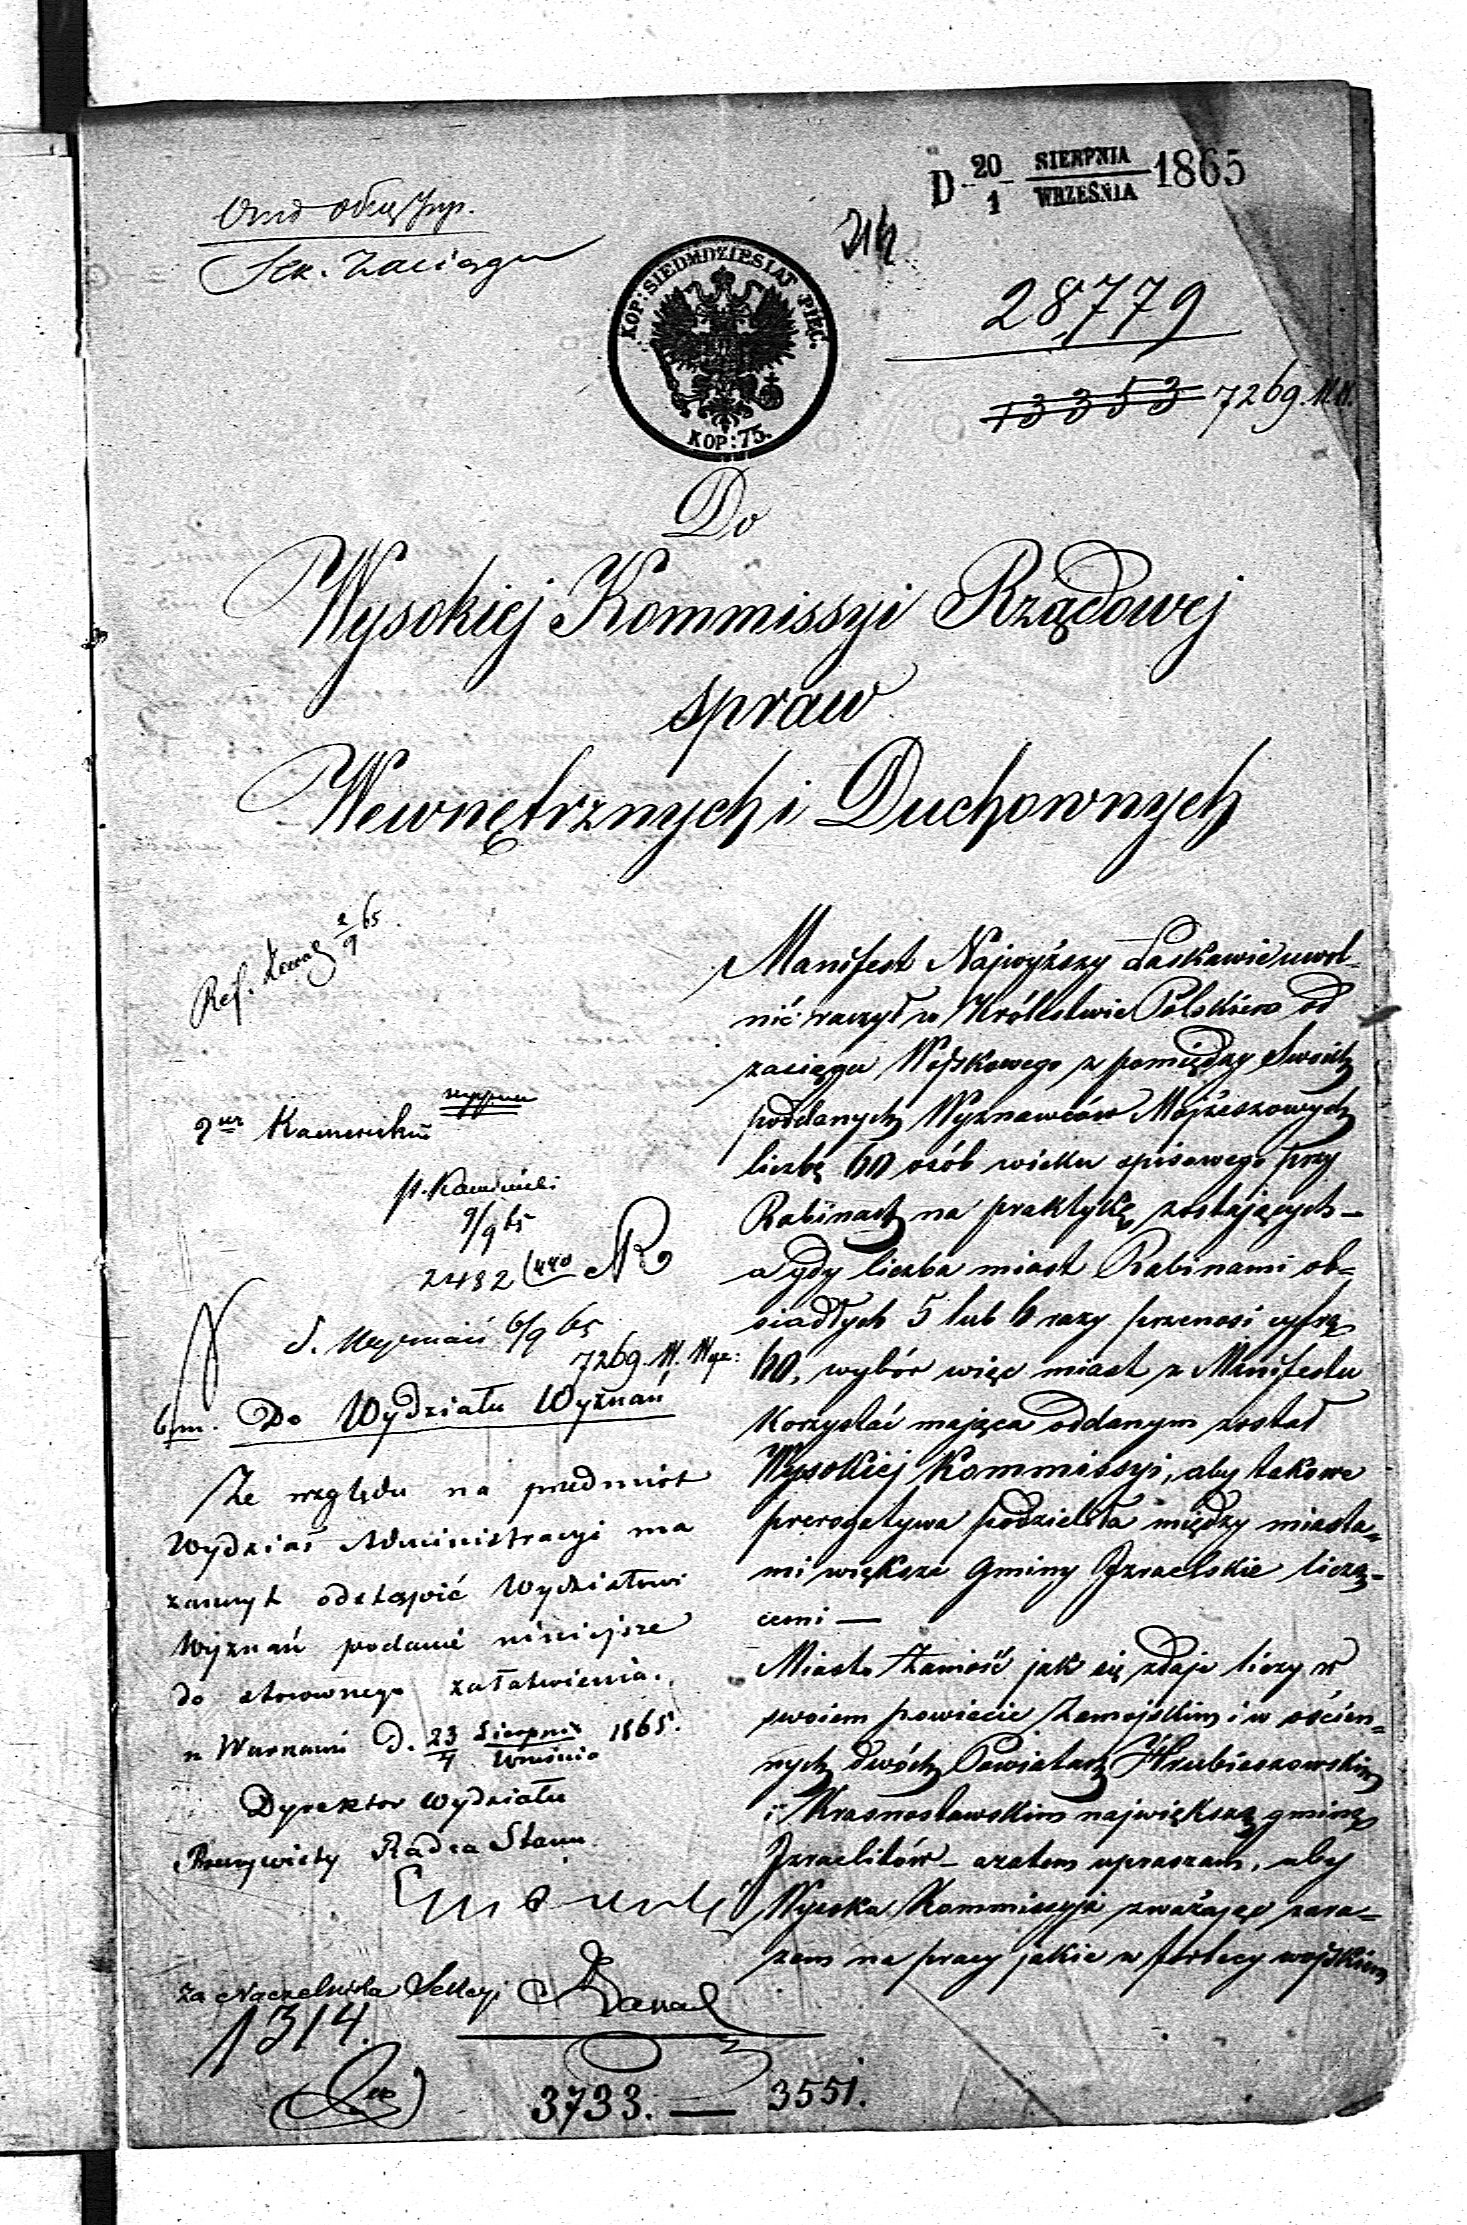 D 20/1 SIERPNIA/WRZEŚNIA 1865
Sek. Zaciągu
KOP: SIEDMDZIESIĄT PIĘĆ.
KOP: 75.
28,779
13353 7269.
Do
Wysokiej Kommissyi Rządowej
spraw
Wewnętrznych i Duchownych
Ref. 2/9 65.
9/9 65
2432
6/9 65
7269. W. Wyz:
Do Wydziału Wyznań
Ze względu na przedmiot
Wydział Administracyi ma
zaszczyt odstąpić Wydziałowi
Wyznań podanie niniejsze
do stosownego załatwienia.
w Warszawie D. 23/4 Sierpnia/Września 1865.
Dyrektor Wydziału
Rzeczywisty Radca Stanu
Za Naczelnika Sekcyi
1314.
3733. — 3551.
Manifest Najwyższy Łaskawie uwol-
nić raczył w Królestwie Polskiem od
zaciągu Wojskowego z pomiędzy Swoich
poddanych Wyznawców Mojżeszowych
liczbę 60 osób wieku spisowego przy
Rabinach na praktykę zostających —
a gdy liczba miast Rabinami ob-
siadłych 5 lub 6 razy przenosi cyfrę
60, wybór więc miast z Manifestu
korzystać mająca oddanym został
Wysokiej Kommissyi, aby takowe
prerogatywa podzieliła między miasta-
mi większe Gminy Izraelskie liczą-
cemi —
Miasto Zamość jak się zdaje liczy w
swoiem powiecie Zamojskim i w ościen-
nych dwóch Powiatach Hrubieszowskim
i Krasnostawskim największą gminę
Izraelitów — azatem upraszam, aby
Wysoka Kommissyja zważając zara-
zem na pracy jakie w fortecy wojskiem